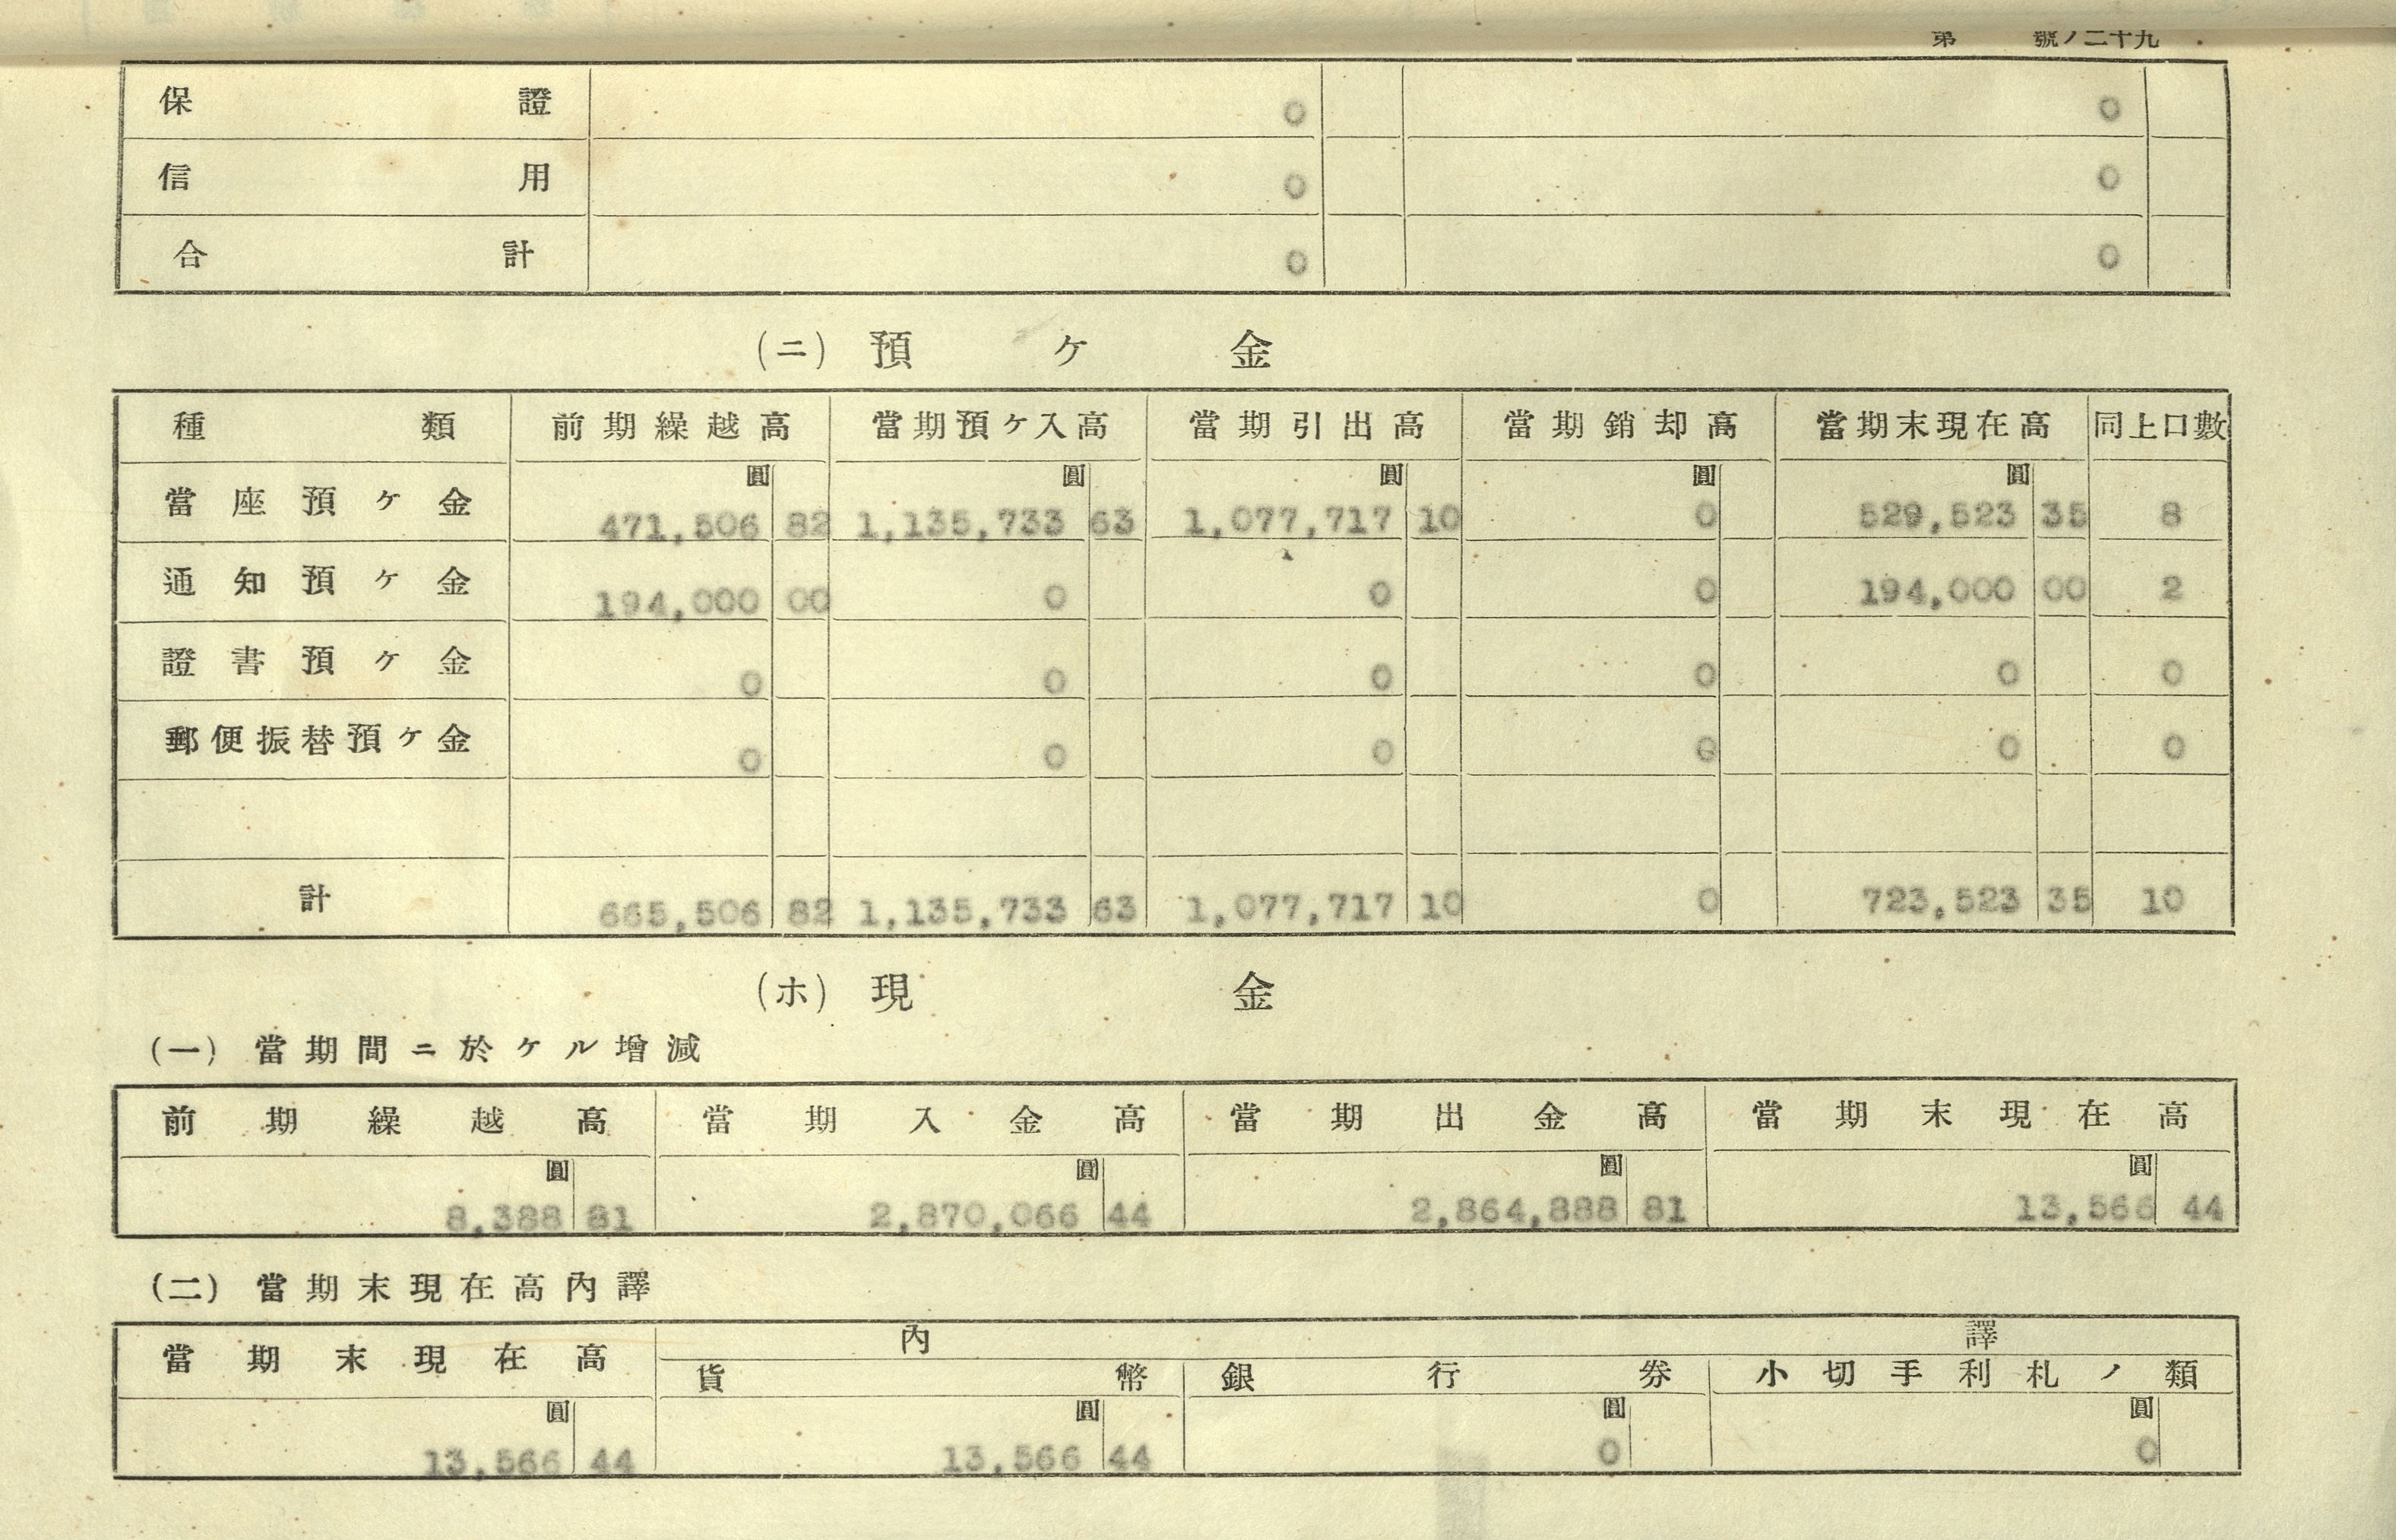 第 號ノ二十九
保證 0 0
信用 0 0
合計 0 0
(ニ) 預ケ金
種類 前期繰越高 當期預ケ入高 當期引出高 當期銷却高 當期末現在高 同上口數
圓 圓 圓 圓 圓
當座預ケ金 471,506 82 1,135,733 63 1,077,717 10 0 529,523 35 8
通知預ケ金 194,000 00 0 0 0 194,000 00 2
證書預ケ金 0 0 0 0 0 0
郵便振替預ケ金 0 0 0 0 0 0
計 665,506 82 1,135,733 63 1,077,717 10 0 723,523 35 10
(ホ) 現金
(一) 當期間ニ於ケル增減
前期繰越高 當期入金高 當期出金高 當期末現在高
圓 圓 圓 圓
8,388 81 2,870,066 44 2,864,888 81 13,566 44
(二) 當期末現在高內譯
當期末現在高 內譯
貨幣 銀行券 小切手利札ノ類
圓 圓 圓 圓
13,566 44 13,566 44 0 0